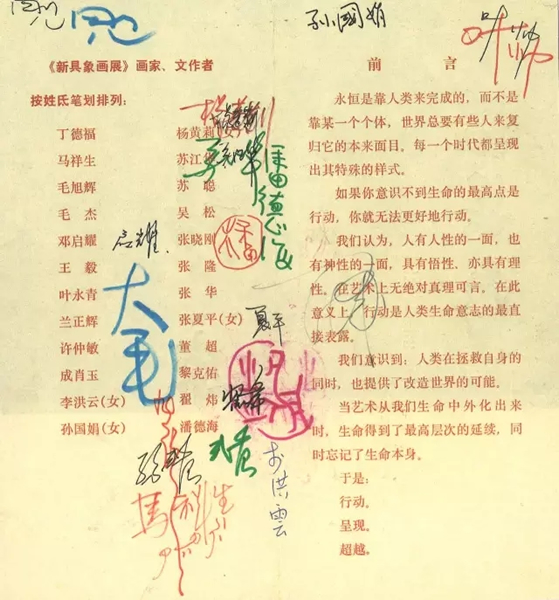 孙国娟
《新具象画展》画家、文作者
按姓氏笔划排列:
丁德福 杨黄莉(女)
马祥生 苏江
毛旭辉 苏聪
毛杰 吴松
邓启耀 启耀 张晓刚
王毅 张隆
叶永青 张华
兰正辉 张夏平(女) 夏平
许仲敏 董超
成肖玉 黎克佑
李洪云(女) 翟炜
孙国娟(女) 潘德海
大毛
潘德海
李洪雲
马祥生
前言
永恒是靠人类来完成的，而不是
靠某一个个体，世界总要有些人来复
归它的本来面目，每一个时代都呈现
出其特殊的样式。
如果你意识不到生命的最高点是
行动，你就无法更好地行动。
我们认为，人有人性的一面，也
有神性的一面，具有悟性，亦具有理
性，在艺术上无绝对真理可言，在此
意义上，行动是人类生命意志的最直
接表露。
我们意识到：人类在拯救自身的
同时，也提供了改造世界的可能。
当艺术从我们生命中外化出来
时，生命得到了最高层次的延续，同
时忘记了生命本身。
于是：
行动。
呈现。
超越。